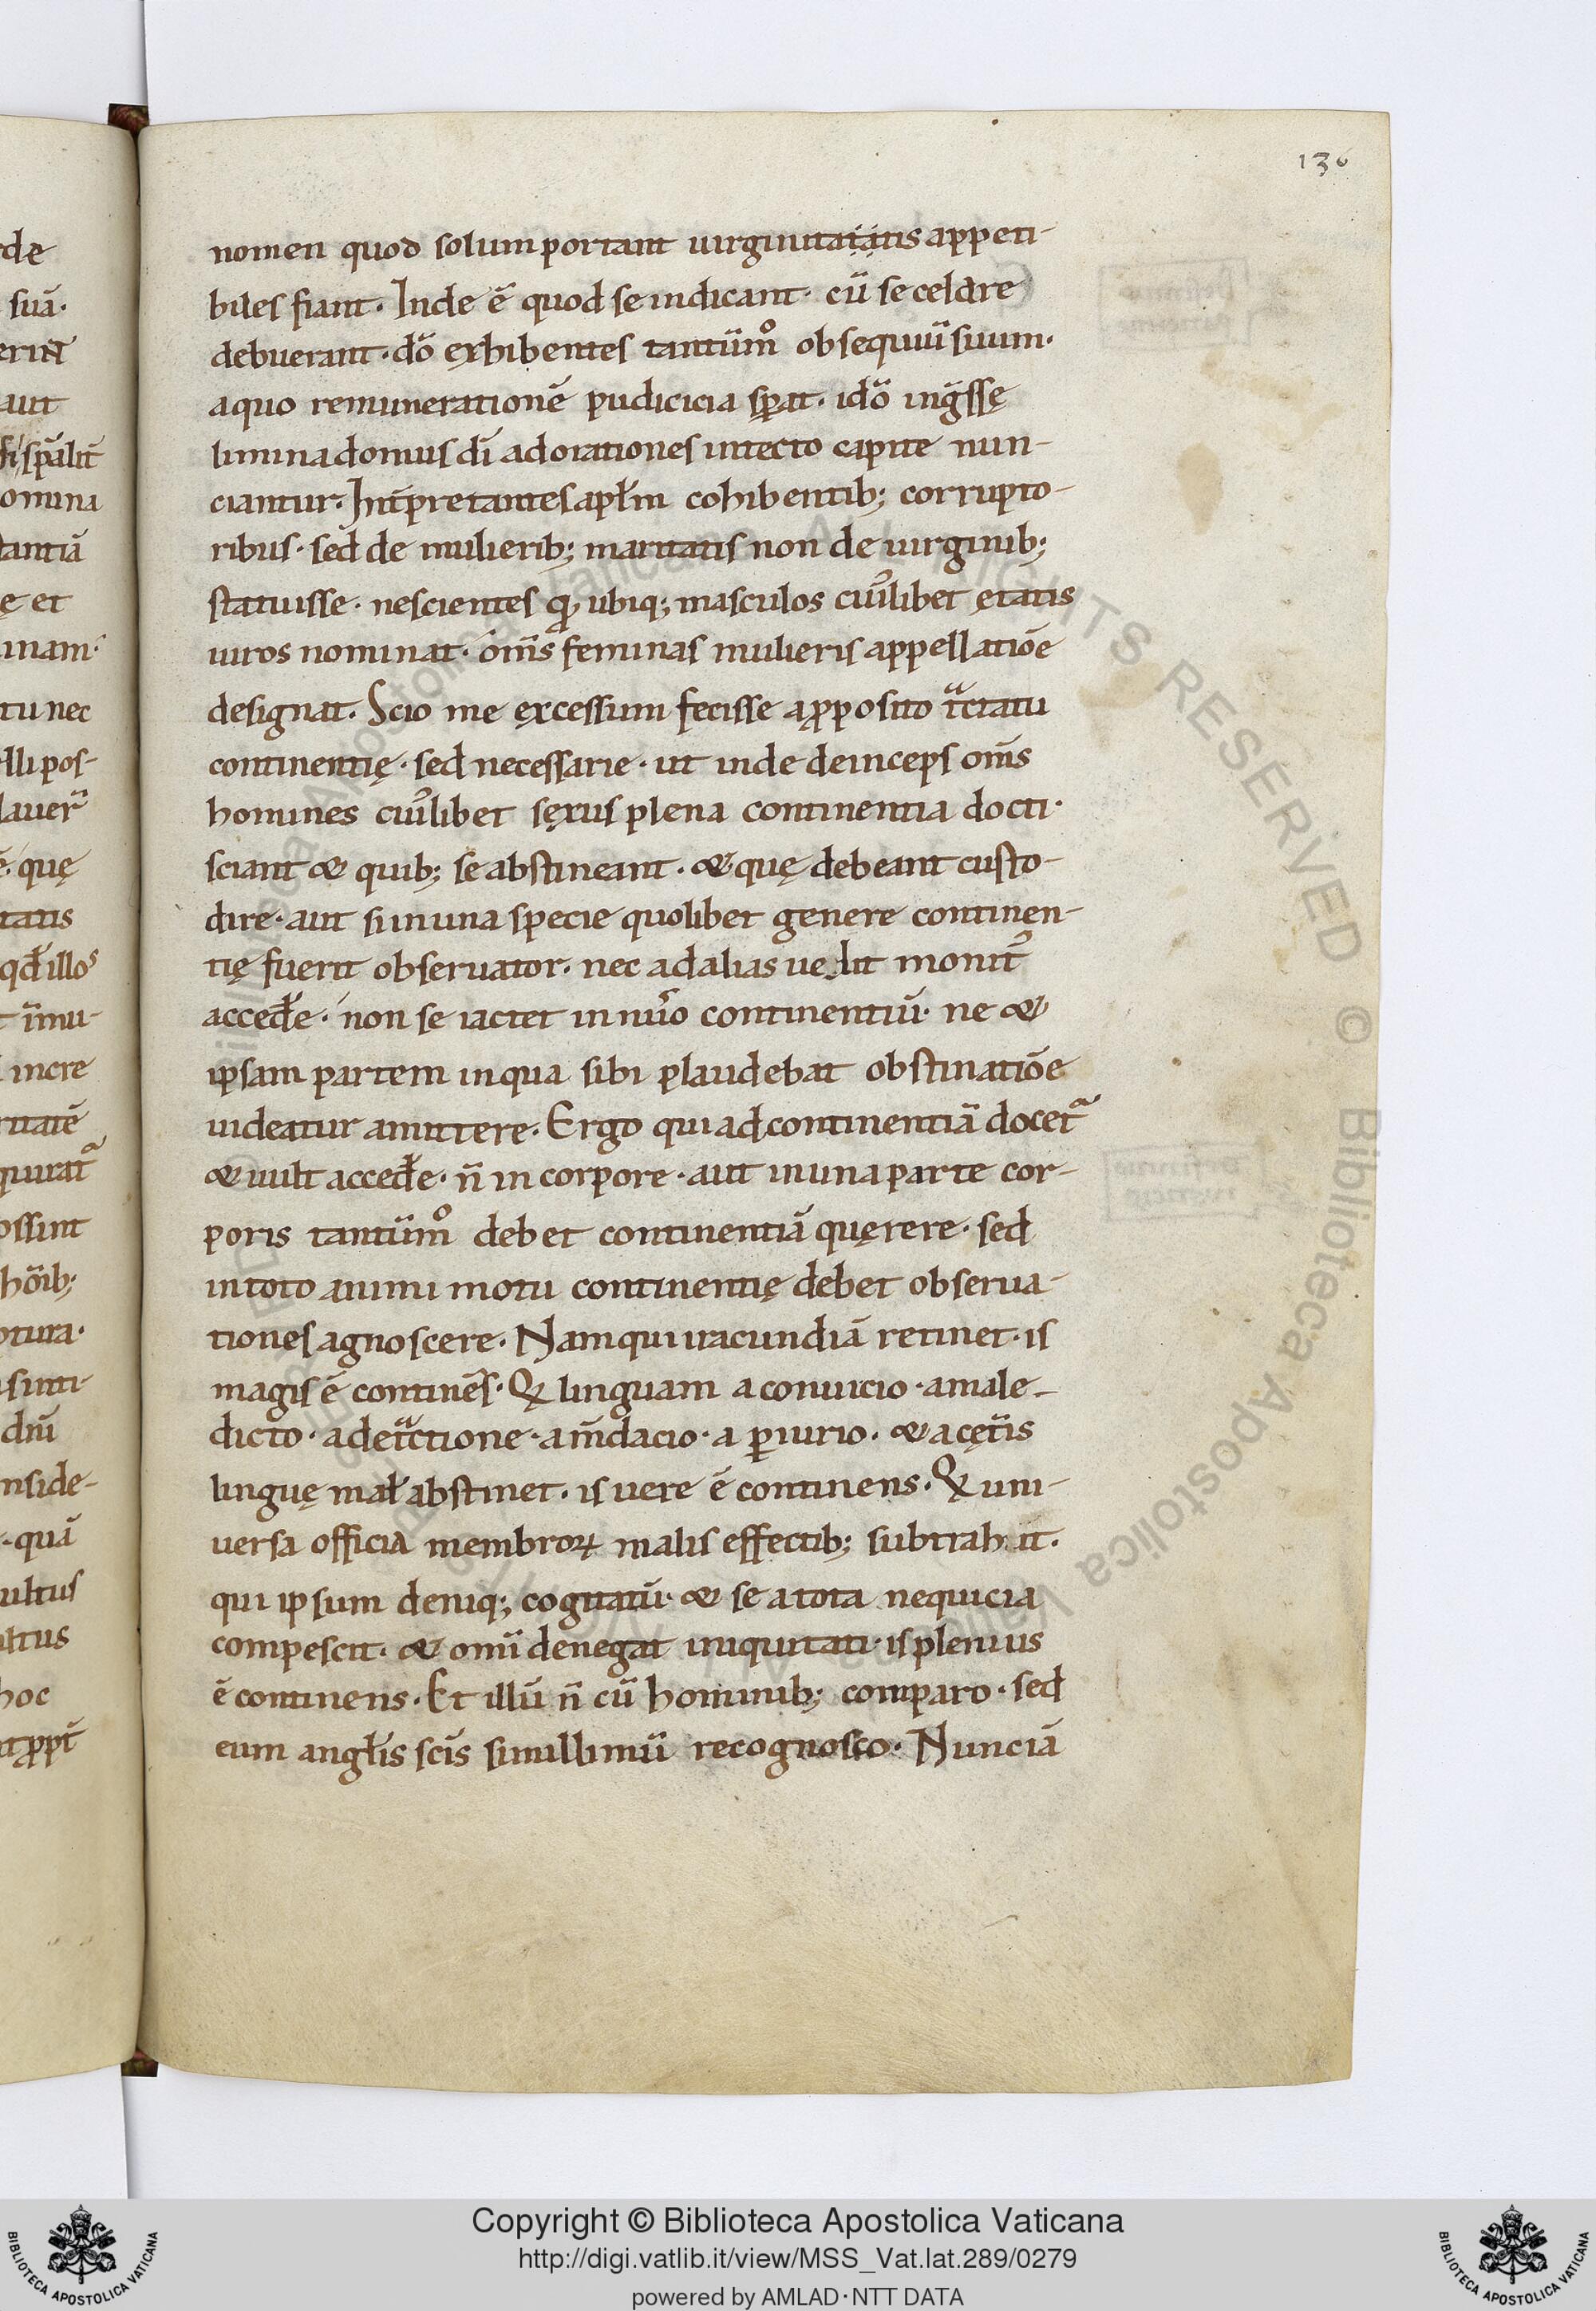 136
nomen quod solum portant uirginitatis appeti-
biles fiant. Inde ē quod se indicant. cū se celare
debuerant. dō exhibentes tantūm̊ obsequiū suum.
a quo remunerationē pudicicia sp̄at. idō inḡssę
limina domus dī adorationes intecto capite nun-
ciantur. Int̄pretantes apłm cohibentib; corrupto-
ribus. sed de mulierib; maritatis non de uirginib;
statuisse. nescientes qđ ubiq; masculos cuiͥlibet ętatis
uiros nominat. om̄s feminas mulieris appellatiōe
designat. Scio me excessum fecisse a ꝓposito tͣctatu
continentię. sed necessarie. ut inde deinceps om̄s
homines cuiͥlibet sexus plena continentia docti.
sciant & quib; se abstineant. & quę debeant custo-
dire. aut si in una specie quolibet genere continen-
tię fuerit obseruator. nec ad alias uelit monit᷒
acceđe. non se iactet in nūo continentiū. ne &
ipsam partem in qua sibi plaudebat obstinatiōe
uideatur amittere. Ergo qui ad continentiā docetᷓ
& uult acceđe. n̄ in corpore. aut in una parte cor-
poris tantūm̊ debet continentiā quęrere. sed
in toto animi motu continentię debet obserua-
tiones agnoscere. Nam qui iracundiā retinet. is
magis ē continēs. Qͥ linguam a conuicio. a male-
dicto. a detͣctione. a m̄dacio. a ꝑiurio. & a cęt̄is
linguę mał abstinet. is uere ē continens. Qͥ uni-
uersa officia membroꝝ malis effectib; subtrahit.
qui ipsum deniq; cogitatū. & se a tota nequicia
compescit. & omī denegat iniquitati. is plenius
ē continens. Et illū n̄ cū hominib; comparo. sed
eum angłis scīs simillimū recognosco. Nunc iā
Copyright © Biblioteca Apostolica Vaticana
http://digi.vatlib.it/view/MSS_Vat.lat.289/0279
powered by AMLAD·NTT DATA
BIBLIOTECA APOSTOLICA VATICANA
BIBLIOTECA APOSTOLICA VATICANA